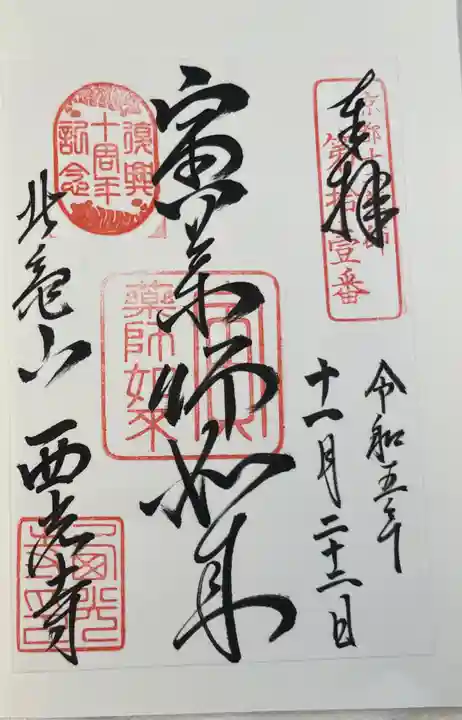 奉拝
京都十二薬師
第拾壹番
令和五年
十一月二十二日
寅薬師如来
寅
藥師如来
復興
十周年
記念
北亀山 西光寺